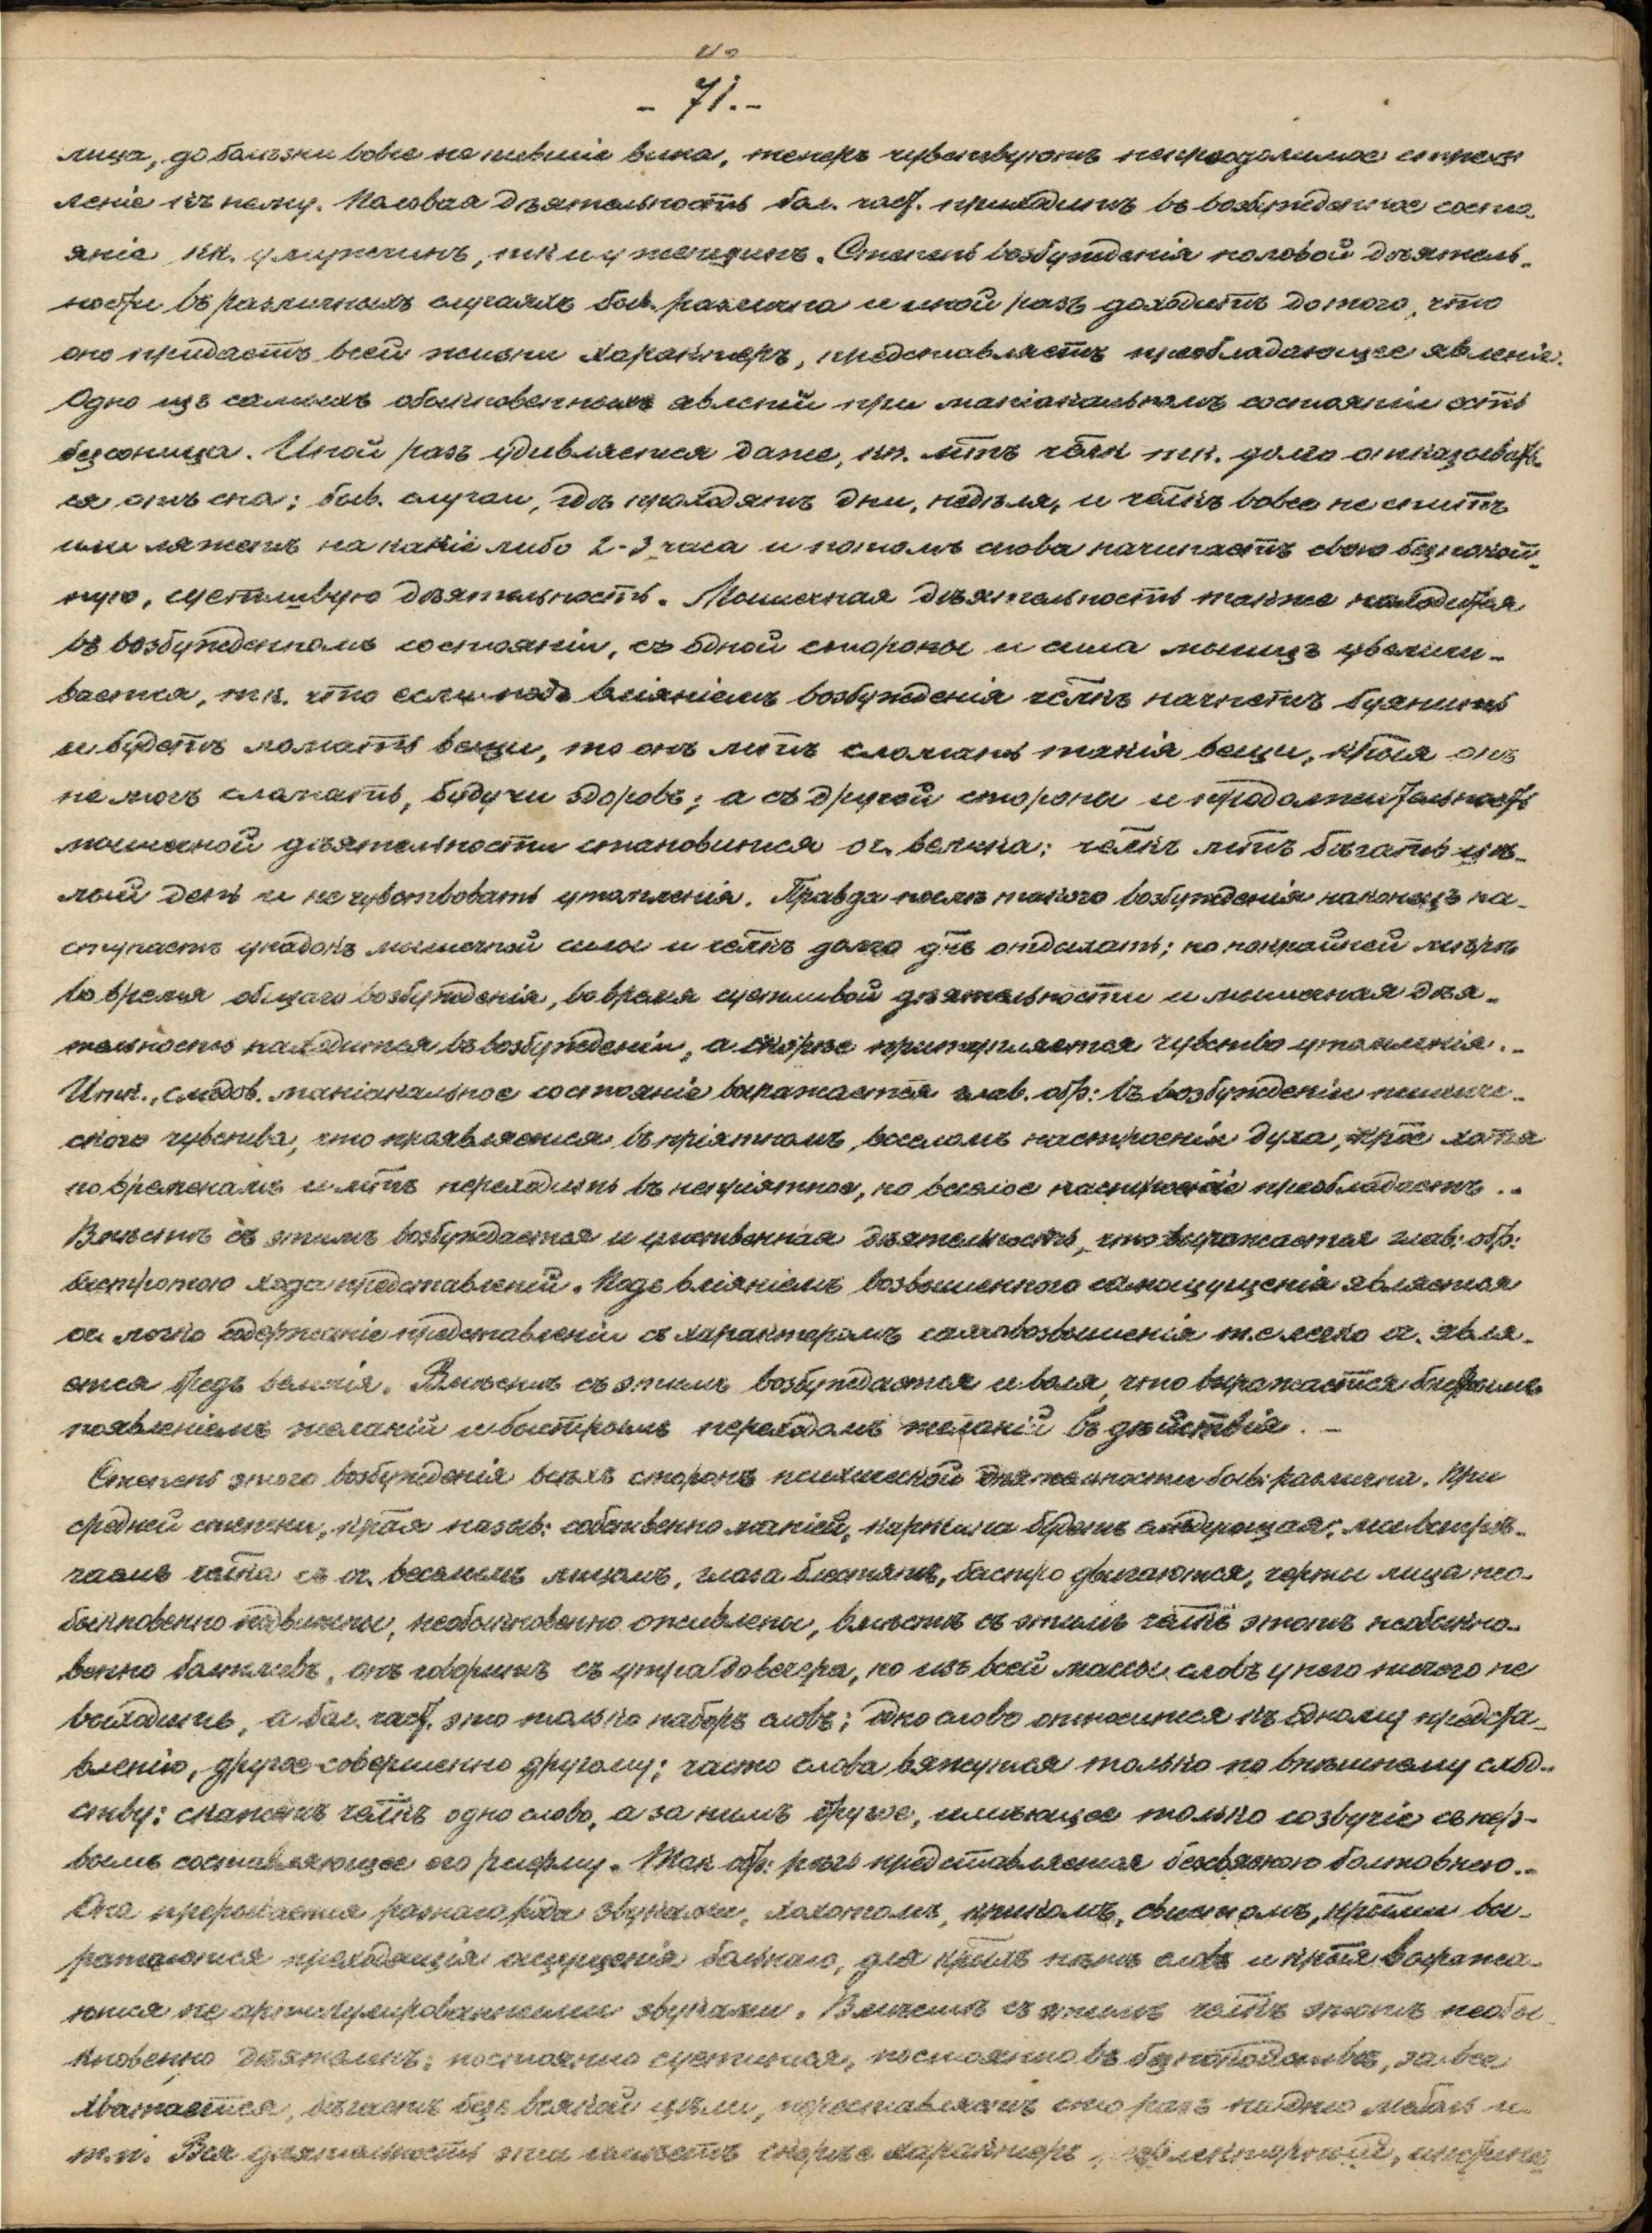 - 71. -
лица, до болѣзни вовсе не пившіе вина, теперь чувствуютъ непреодолимое стрем
леніе къ нему. Половая дѣятельность бол. част. приходитъ въ возбужденное состо-
яніе кк. у мужчинъ, тк и у женщинъ. Степень возбужденія половой дѣятель-
ности въ различныхъ случаяхъ быв. различна и иной разъ доходитъ до того, что
оно придаетъ всей жизни характеръ, представляетъ преобладающее явленіе.
Одно изъ самыхъ обыкновенныхъ явленій при маніакальномъ состояніи есть
безсоница. Иной разъ удивляешся даже, кк. м̅тъ ч̅лк тк. долго отказывать-
ся отъ сна; быв. случаи, гдѣ проходятъ дни, недѣля, и ч̅лкъ вовсе не спитъ
или ляжетъ на какіе либо 2-3 часа и потомъ снова начинаетъ свою безпокой-
ную, суетливую дѣятельность. Мышечная дѣятельность также находится
въ возбужденномъ состояніи, съ одной стороны и сила мышцъ увеличи-
вается, тк. что если подъ вліяніемъ возбужденія ч̅лкъ начнетъ буянить
и будетъ ломать вещи, то онъ м̅тъ сломать такія вещи, к̅рыя онъ
не могъ сломать, будучи здоровъ; а съ другой стороны и продолжительность
мышечной дѣятельности становится оч. велика; ч̅лкъ м̅тъ бѣгать цѣ-
лый день и не чувствовать утомленія. Правда послѣ такого возбужденія наконецъ на-
ступаетъ упадокъ мышечной силы и ч̅лкъ долго д̅нъ отдыхать; но покрайней мѣрѣ
во время общаго возбужденія, во время суетливой дѣятельности и мышечная дѣя-
тельность находится въ возбужденіи, а скорѣе притупляется чувство утомленія. -
Итк., слѣдов. маніакальное состояніе выражается глав. обр: въ возбужденіи психиче-
ского чувства, что проявляется въ пріятномъ, веселомъ настроеніи духа, к̅рое хотя
по временамъ и м̅тъ переходить въ непріятное, но веселое настроеніе преобладаетъ. -
Вмѣстѣ съ этимъ возбуждается и умственная дѣятельность, что выражается глав: обр:
быстротою хода представленій. Подъ вліяніемъ возвышенного самоощущенія является
оч. легко содержаніе представленій съ характеромъ самовозвышенія т.е легко оч. явля-
ется бредъ величія. Вмѣстѣ съ этимъ возбуждается и воля, что выражается быстрымъ
появленіемъ желаній и быстрымъ переходомъ желаній въ дѣйствія. -
Степень этого возбужденія всѣхъ сторонъ психической дѣятельности быв: различна. При
средней степени, к̅рая назыв: собственно маніей, картина будетъ слѣдующая: мы встрѣ-
чаемъ ч̅лка съ оч. веселымъ лицомъ, глаза блестятъ, быстро двигаются, черты лица нео-
быкновенно подвижны, необыкновенно оживлены, вмѣстѣ съ этимъ ч̅лкъ этотъ необыкно-
венно болтливъ, онъ говоритъ съ утра до вечера, но изъ всей массы словъ у него ничего не
выходитъ, а бол. част. это только наборъ словъ; одно слово относится къ одному предста-
вленію, другое-совершенно другому; часто слова вяжутся только по внѣшнему слѣд-
ству: скажетъ ч̅лкъ одно слово, а за нимъ другое, имѣющее только созвучіе съ пер-
вымъ составляющее его рифму. Так обр: рѣчь представляется безсвязною болтовнею. -
Она прерывается разнаго рода звуками, хохотомъ, крикомъ, свистомъ, к̅рыми вы-
ражаются преходящія ощущенія больнаго, для к̅рыхъ нѣтъ словъ и к̅рыя выража-
ются не артикулированными звуками. Вмѣстѣ съ этимъ ч̅лкъ этотъ необы-
кновенно дѣятеленъ; постоянно суетится, постоянно въ безпокойствѣ, за все
хватается, бѣгаетъ безъ всякой цѣли, переставляетъ сто разъ на дню мебель и
т.п. Вся дѣятельность эта имѣетъ скорѣе характеръ